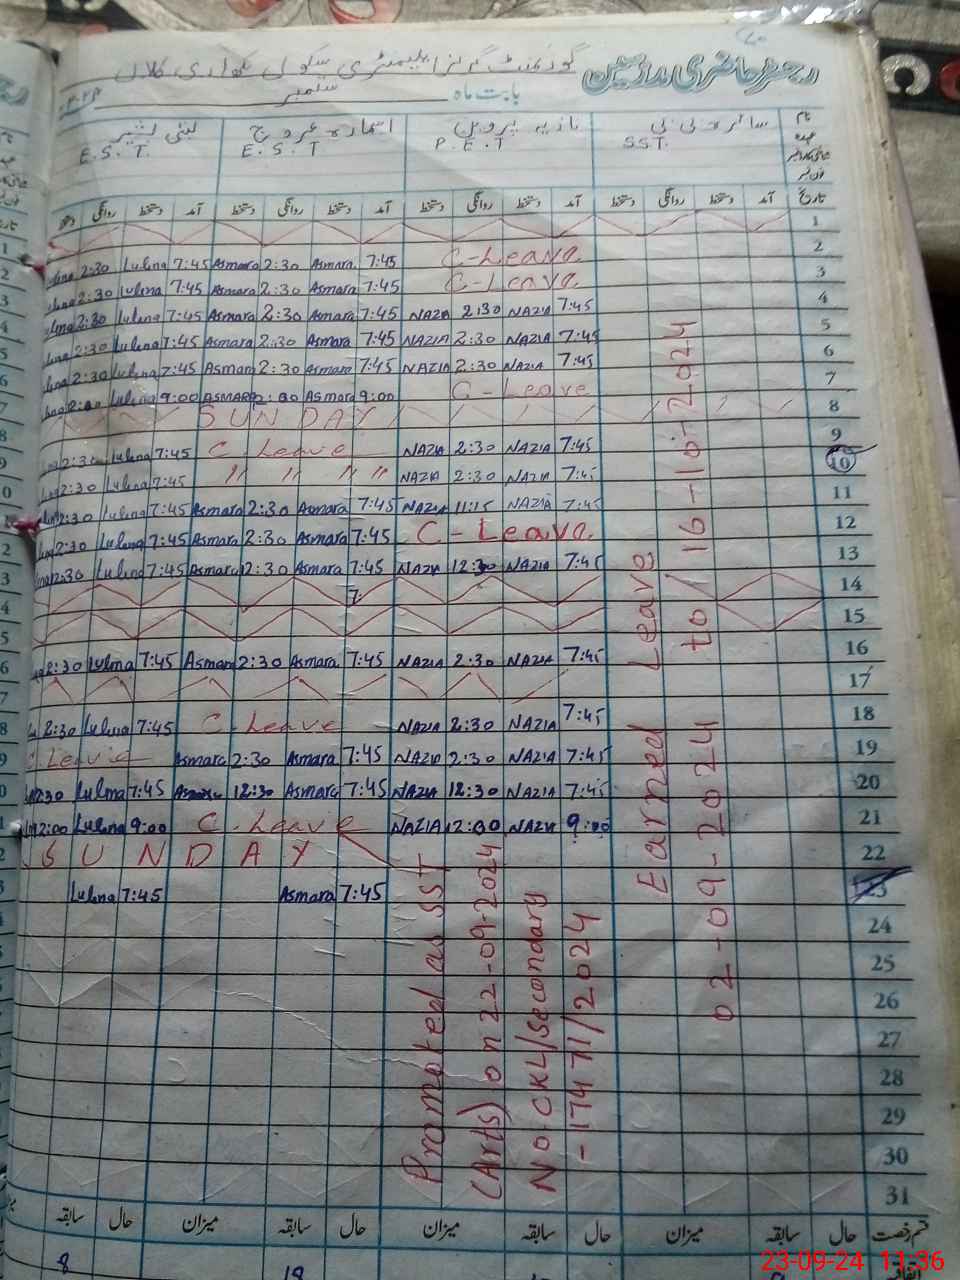 رجسٹر حاضری مدرسین گورنمنٹ گرلز ایلیمنٹری سکول
بابت ماہ ستمبر
نام سائرہ بی بی نازیہ پروین اسمارہ عروج لبنیٰ بشیر
عہدہ SST. P.E.T E.S.T E.S.T.
تاریخ آمد دستخط روانگی دستخط آمد دستخط روانگی دستخط آمد دستخط روانگی دستخط آمد دستخط روانگی دستخط
1
2:30 Lubna 7:45 Asmara 2:30 Asmara 7:45 C-Leave 2
2:30 Lubna 7:45 Asmara 2:30 Asmara 7:45 C-Leave 3
2:30 Lubna 7:45 Asmara 2:30 Asmara 7:45 NAZIA 2:30 NAZIA 7:45 4
2:30 Lubna 7:45 Asmara 2:30 Asmara 7:45 NAZIA 2:30 NAZIA 7:45 5
2:30 Lubna 7:45 Asmara 2:30 Asmara 7:45 NAZIA 2:30 NAZIA 7:45 6
Lubna 9:00 ASMARA 2:00 Asmara 9:00 C-Leave 7
SUNDAY 8
2:30 Lubna 7:45 C Leave NAZIA 2:30 NAZIA 7:45 9
2:30 Lubna 7:45 " " " " NAZIA 2:30 NAZIA 7:45 10
2:30 Lubna 7:45 Asmara 2:30 Asmara 7:45 NAZIA 11:15 NAZIA 7:45 11
2:30 Lubna 7:45 Asmara 2:30 Asmara 7:45 C-Leave. 12
12:30 Lubna 7:45 Asmara 12:30 Asmara 7:45 NAZIA 12:30 NAZIA 7:45 13
7: 14
15
2:30 Lubna 7:45 Asmara 2:30 Asmara 7:45 NAZIA 2:30 NAZIA 7:45 16
17
2:30 Lubna 7:45 C-Leave NAZIA 2:30 NAZIA 7:45 18
C Leave Asmara 2:30 Asmara 7:45 NAZIA 2:30 NAZIA 7:45 19
12:30 Lubna 7:45 Asmara 12:30 Asmara 7:45 NAZIA 12:30 NAZIA 7:45 20
12:00 Lubna 9:00 C-Leave NAZIA 2:00 NAZIA 9:00 21
SUNDAY 22
Lubna 7:45 Asmara 7:45 23
24
25
26
27
28
29
30
31
Promoted as SST
(Arts) on 22-09-2024
No. CKL/Secondary
-17471/2024
Earned Leave
02-09-2024 to 16-10-2024
قسم رخصت حال سابقہ میزان حال سابقہ میزان حال سابقہ میزان حال سابقہ
اتفاقیہ 18 8
23-09-24 11:36